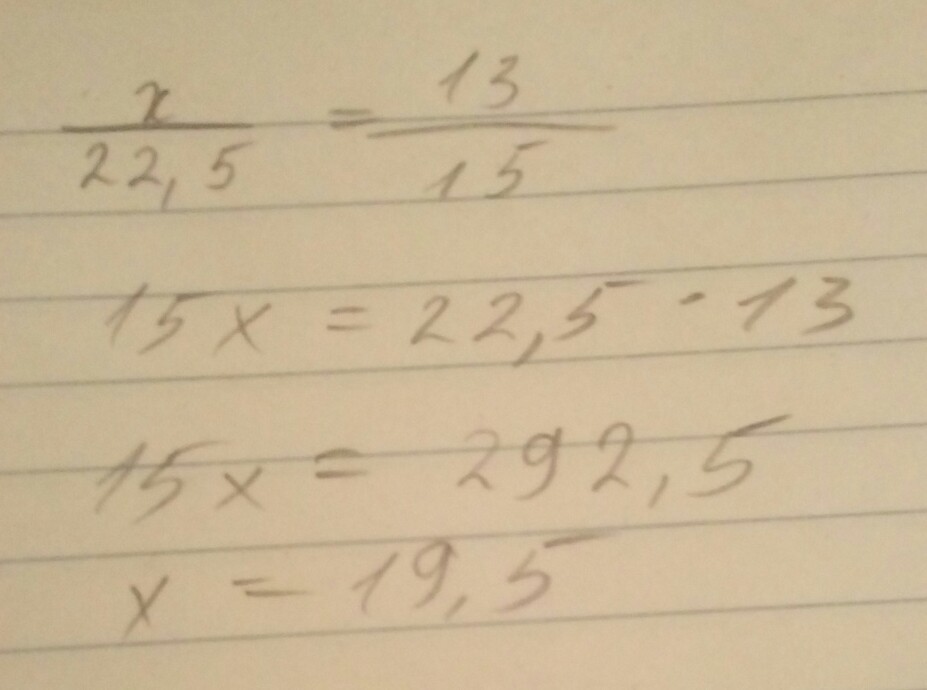 x/22,5 = 13/15
15x = 22,5 · 13
15x = 292,5
x = 19,5